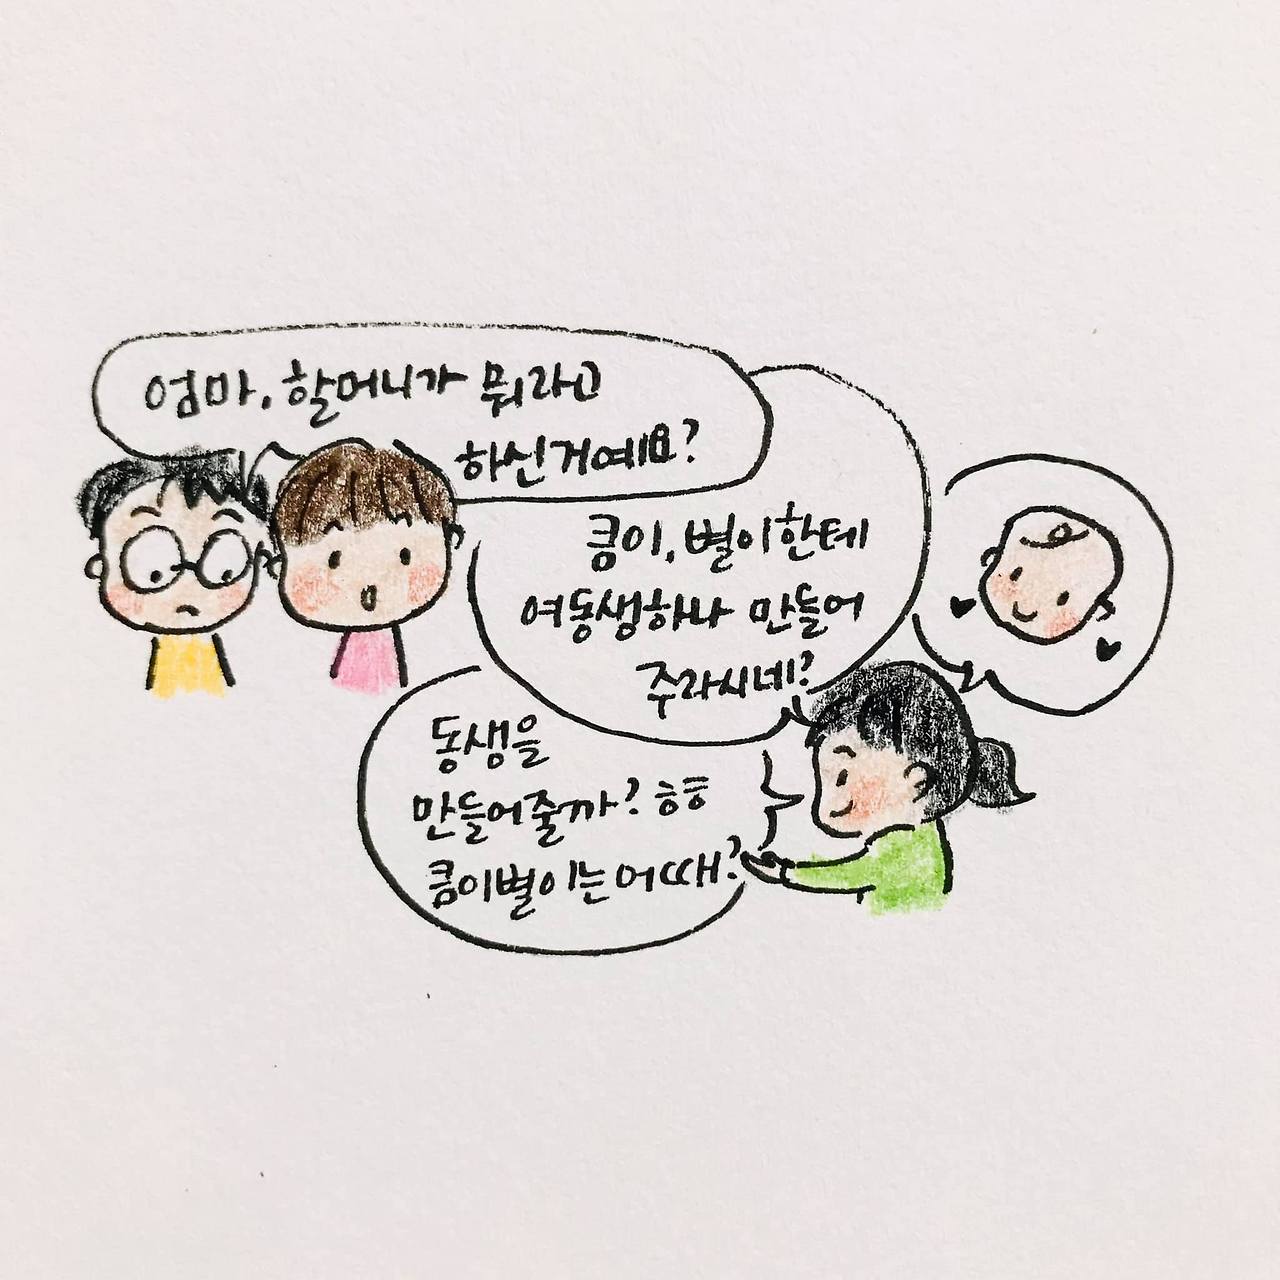 엄마, 할머니가 뭐라고
하신거예요?
콩이, 별이한테
여동생하나 만들어
주라시네?
동생을
만들어줄까? ㅎㅎ
콩이별이는어때?